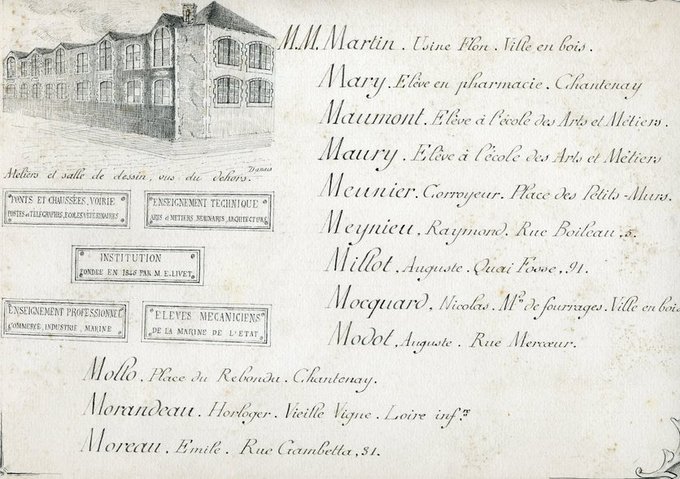 M.M. Martin. Usine Flon. Ville en bois.
Mary. Elève en pharmacie. Chantenay
Maumont. Elève à l'école des Arts et Métiers.
Maury. Elève à l'école des Arts et Métiers
Meunier. Corroyeur. Place des Petits-Murs.
Meynieu, Raymond. Rue Boileau, 5.
Millot, Auguste. Quai Fosse, 91.
Mocquard, Nicolas. Md de fourrages. Ville en bois
Modot, Auguste. Rue Mercœur.
Ateliers et salle de dessin, vus du dehors.
PONTS ET CHAUSSÉES, VOIRIE
POSTES et TÉLÉGRAPHES, ÉCOLES VÉTÉRINAIRES
ENSEIGNEMENT TECHNIQUE
ARTS et MÉTIERS, BEAUX-ARTS, ARCHITECTURE
INSTITUTION
FONDÉE EN 1846 PAR M. E. LIVET
ENSEIGNEMENT PROFESSIONNEL
COMMERCE, INDUSTRIE, MARINE
ELÈVES MÉCANICIENS
DE LA MARINE DE L'ÉTAT
Mollo. Place du Rebondu. Chantenay.
Morandeau. Horloger. Vieille Vigne. Loire infre
Moreau. Emile. Rue Gambetta, 31.